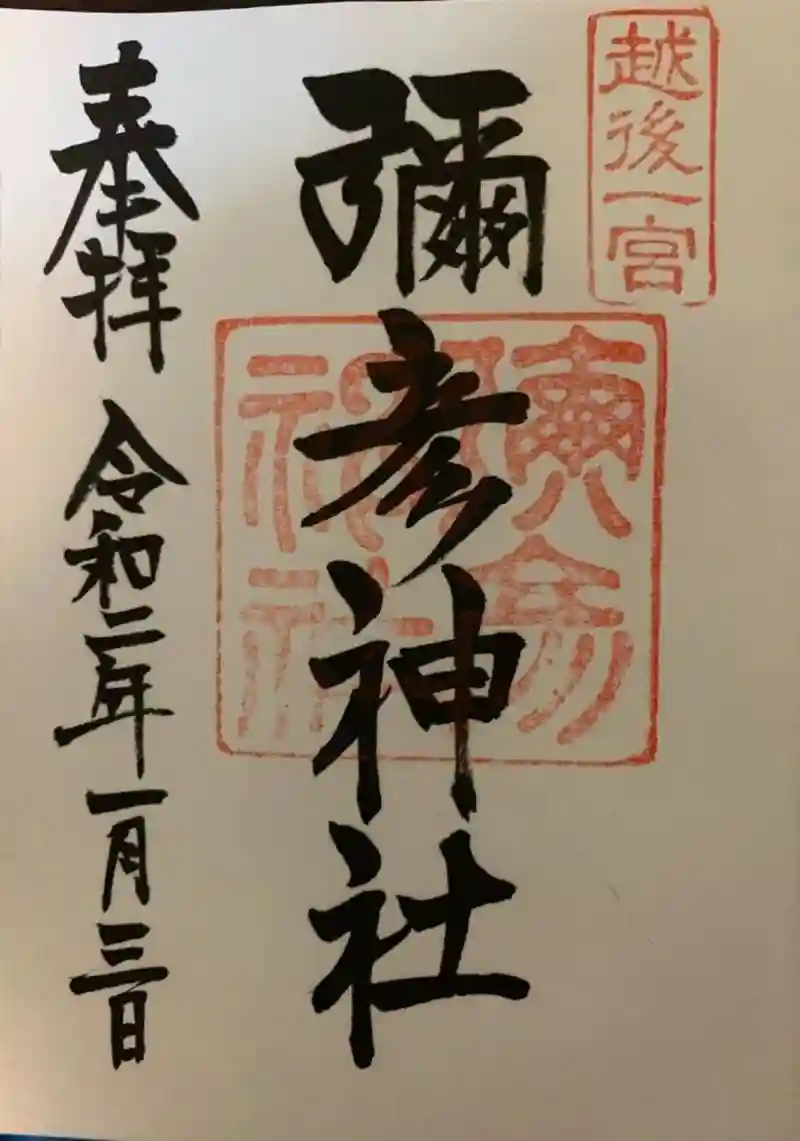 越後一宮
彌彦神社
彌彦神社
奉拝 令和二年一月三日